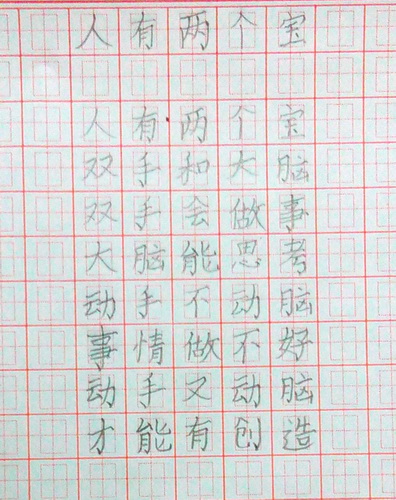 人有两个宝
人有两个宝
双手和大脑
双手会做事
大脑能思考
动手不动脑
事情做不好
动手又动脑
才能有创造